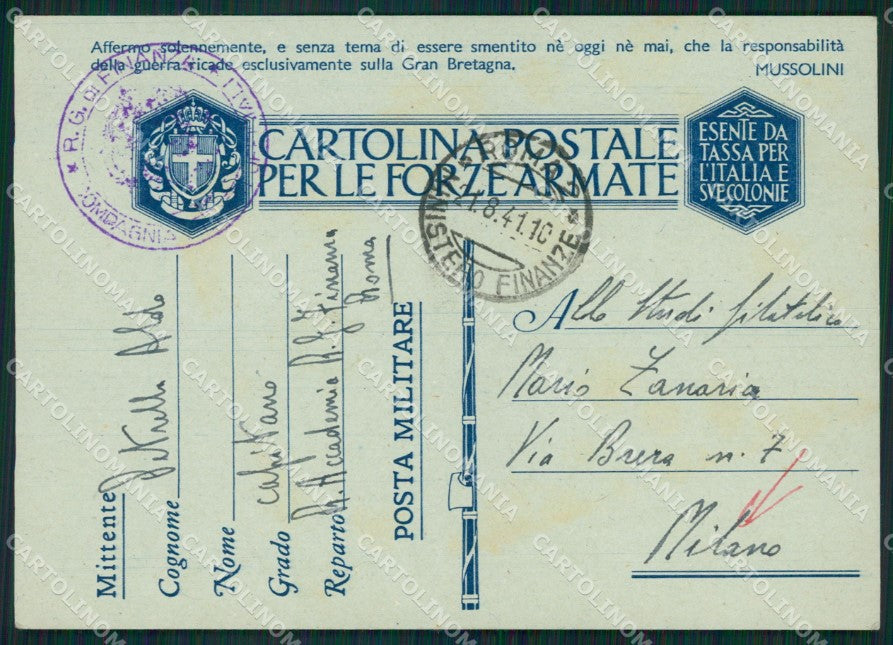 Affermo solennemente, e senza tema di essere smentito nè oggi nè mai, che la responsabilità
della guerra ricade esclusivamente sulla Gran Bretagna.
MUSSOLINI
R. G. DI FINANZA
CARTOLINA POSTALE
PER LE FORZE ARMATE
ESENTE DA
TASSA PER
L'ITALIA E
SVE COLONIE
ROMA
21.8.41.10
MINISTERO FINANZE
Mittente
Cognome
Aldo
Nome
Grado capitano
Reparto R. Accademia R. G. Finanza
Roma
POSTA MILITARE
Allo Studi filatelico
Mario Zanaria
Via Brera n. 7
Milano
CARTOLINOMANIA